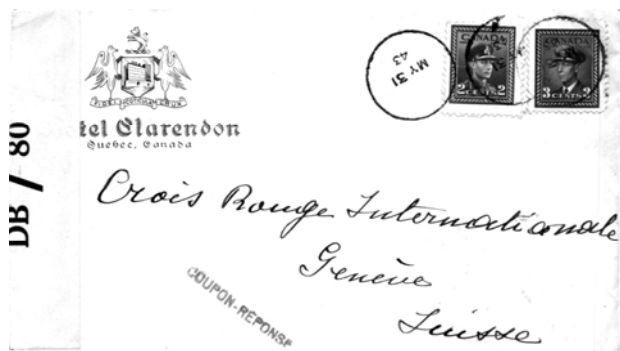 DB / 80
tel Clarendon
Quebec, Canada
MY 31
43
CANADA
2 CENTS 2
CANADA
3 CENTS 3
Crois Rouge Internationale
Genève
Suisse
COUPON-RÉPONSE